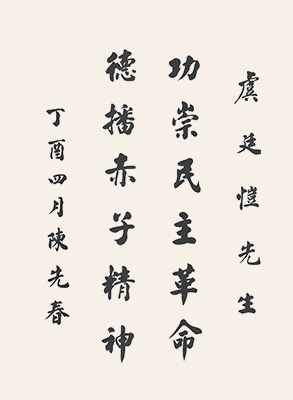 虞廷愷先生
功崇民主革命
德播赤子精神
丁酉四月陳先春